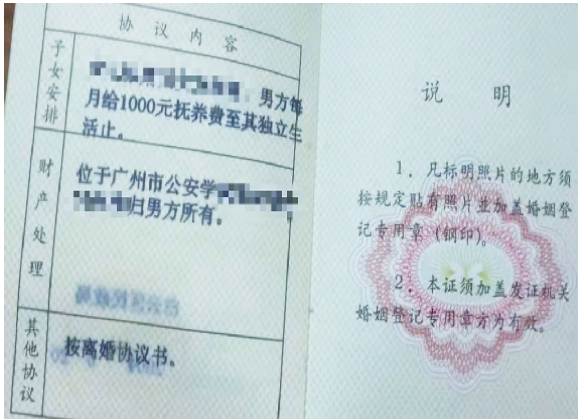 协议内容
子女安排
男方每
月给1000元抚养费至其独立生
活止。
财产处理
位于广州市公安学
归男方所有。
其他协议
按离婚协议书。
说明
1．凡标明照片的地方须
按规定贴有照片并加盖婚姻登
记专用章（钢印）。
2．本证须加盖发证机关
婚姻登记专用章方为有效。